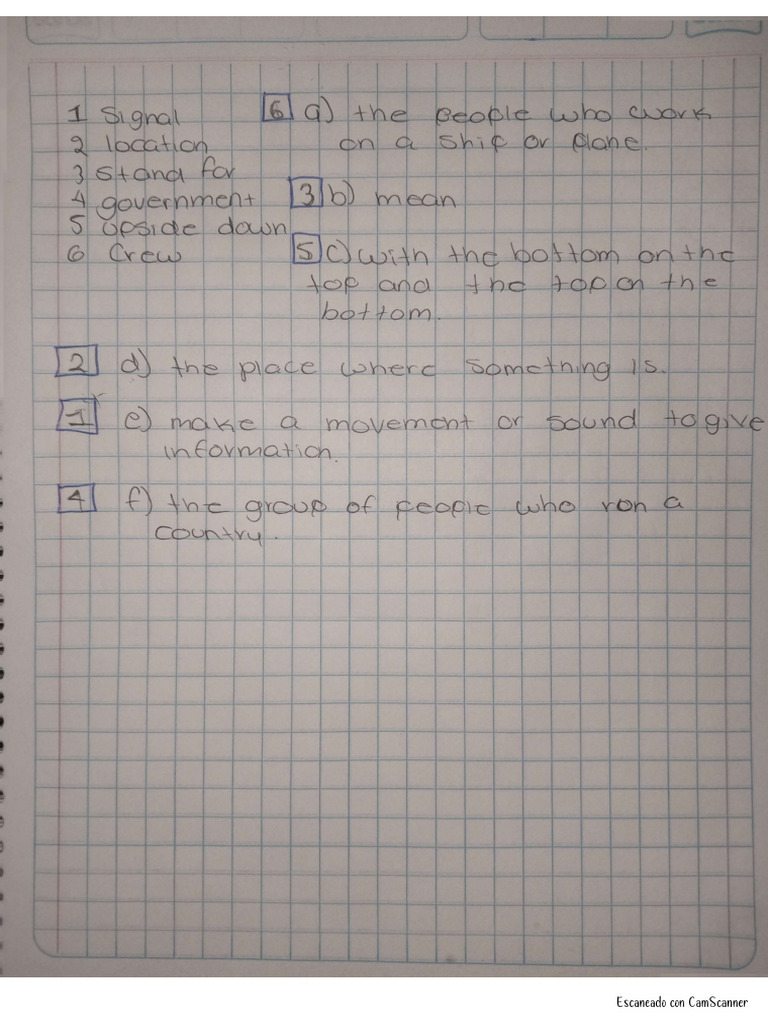 1 Signal
2 location
3 stand for
4 government
5 upside down
6 Crew
6 a) the people who work
on a ship or plane.
3 b) mean
5 c) with the bottom on the
top and the top on the
bottom.
2 d) the place where something is.
1 e) make a movement or sound to give
information.
4 f) the group of people who ron a
country.
Escaneado con CamScanner